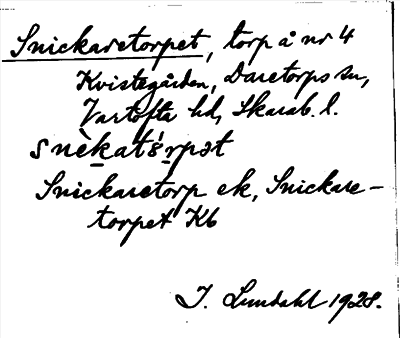 Snickaretorpet, torp å nr 4
Kvistegården, Daretorps sn,
Vartofta hd, Skarab. l.
snèkató̀rpət
Snickaretorp ek, Snickare-
torpet Kb
I. Lundahl 1928.